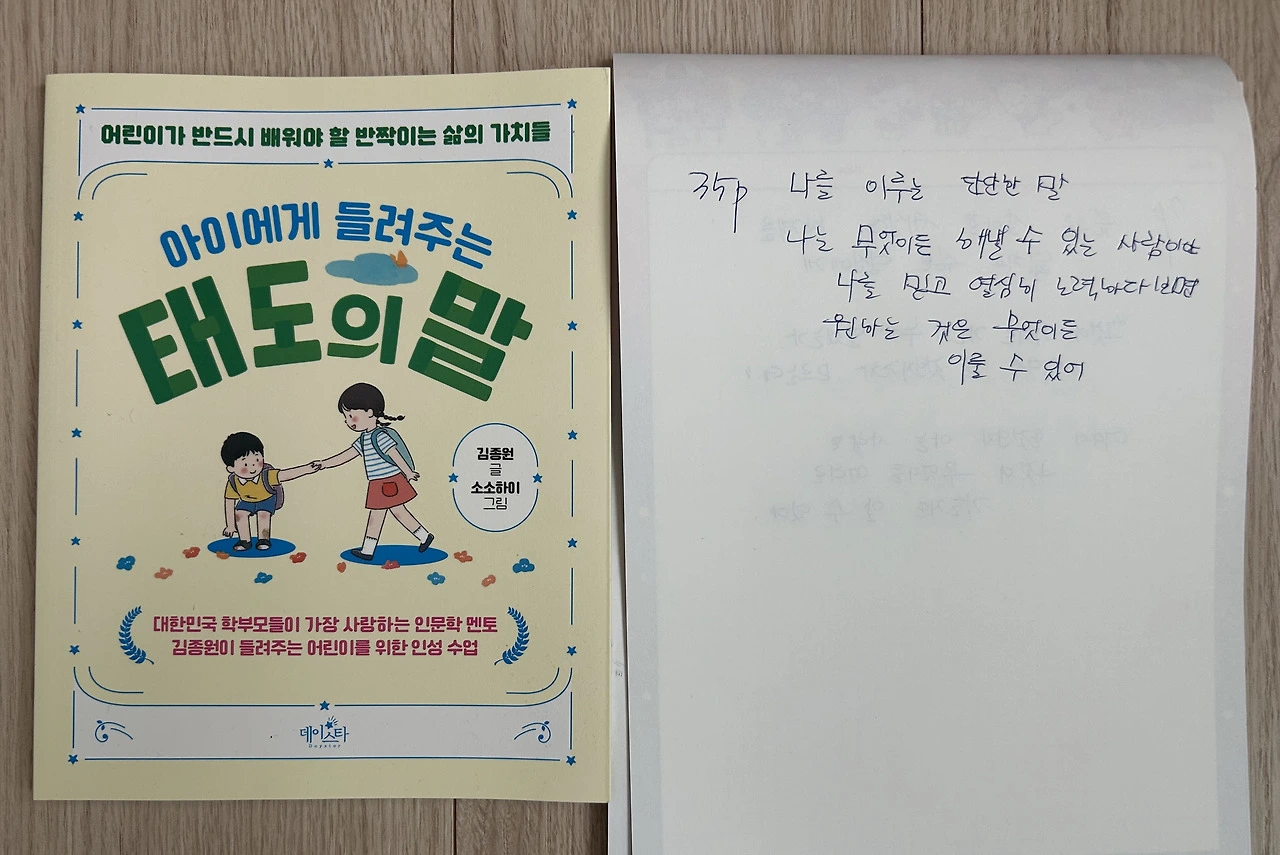 어린이가 반드시 배워야 할 반짝이는 삶의 가치들
아이에게 들려주는
태도의 말
김종원
글
소소하이
그림
대한민국 학부모들이 가장 사랑하는 인문학 멘토
김종원이 들려주는 어린이를 위한 인성 수업
데이스타
Daystar
35p 나를 이루는 단단한 말
나는 무엇이든 해낼 수 있는 사람이야
나를 믿고 열심히 노력하다보면
원하는 것은 무엇이든
이룰 수 있어